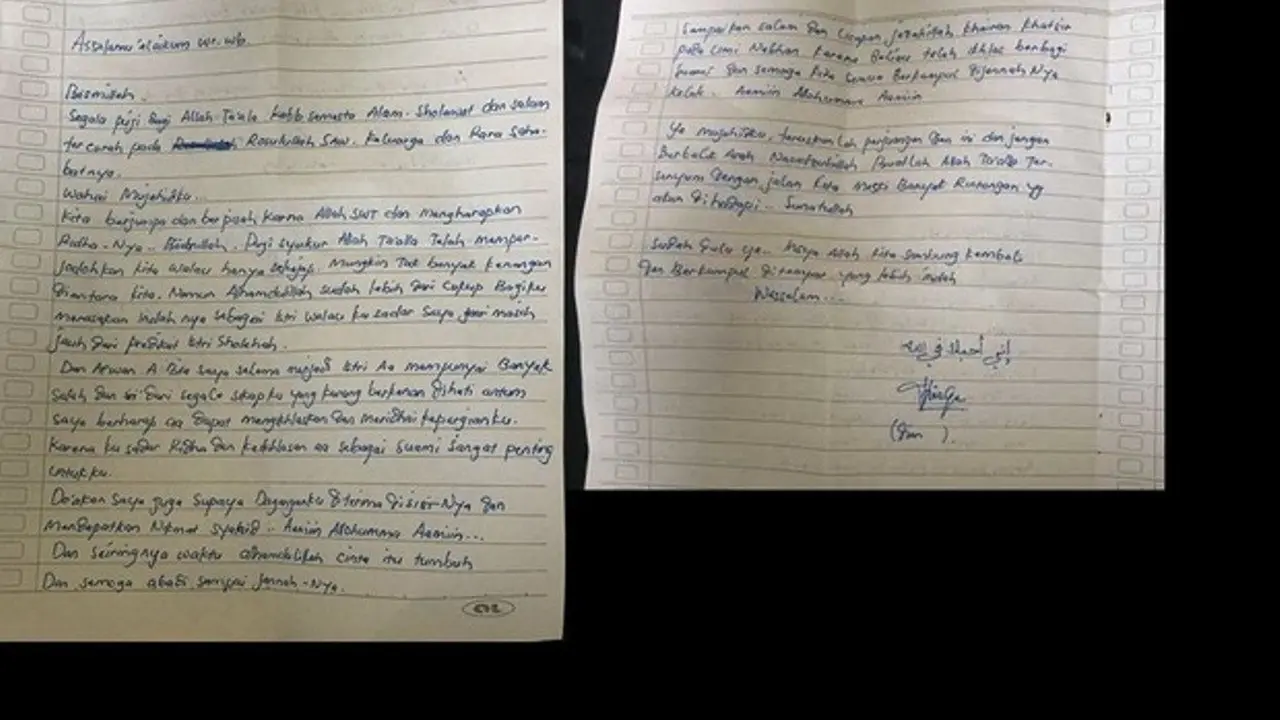 Assalamu'alaikum wr.wb
Bismillah.
Segala puji bagi Allah Ta'ala Robb semesta Alam. Sholawat dan salam
tercurah pada Rosulullah SAW. Keluarga dan Para Saha-
batnya.
Wahai Mujahidku..
Kita berjumpa dan berpisah karna Allah SWT dan mengharapkan
Ridho-Nya.. Biidznillah. Puji syukur Allah Ta'alla Telah memper-
jodohkan kita walau hanya sekejap. Mungkin Tak banyak kenangan
diantara kita. Namun Alhamdulillah sudah lebih dari cukup Bagiku
merasakan indah nya sebagai istri walau ku sadar saya masih
jauh dari predikat istri Sholehah.
Dan Afwan A Bila saya selama menjadi istri Aa mempunyai Banyak
salah dan dari segala sikapku yang kurang berkenan dihati antum
saya berharap aa dapat mengikhlaskan dan meridhai kepergianku.
Karena ku sadar Ridha dan keikhlasan aa sebagai suami sangat penting
untukku.
Do'akan saya juga supaya Daganganku diterima disisi-Nya dan
Mendapatkan Nikmat syahid.. Aamiin Allohumma Aamiin...
Dan seiringnya waktu alhamdulillah cinta itu tumbuh
Dan semoga abadi sampai Jannah-Nya.
Sampaikan salam dan ucapan jazakillah khairan khatsir
pada Umi Nabhan karena Beliau telah ikhlas berbagi
suami dan semoga kita semua Berkumpul diJannah-Nya
kelak. Aamiin Allohumma Aamiin
Ya Mujahidku teruskanlah perjuangan dan ini dan jangan
Berbalik Arah Allah Ta'alla Ter-
senyum dengan jalan kita meski Banyak Rintangan yg
akan dihadapi.. Sunatullah
Sudah dulu ya.. InsyaAllah kita sambung kembali
dan Berkumpul ditempat yang lebih indah
Wassalam...
إني أحبك في الله
(Dian ).